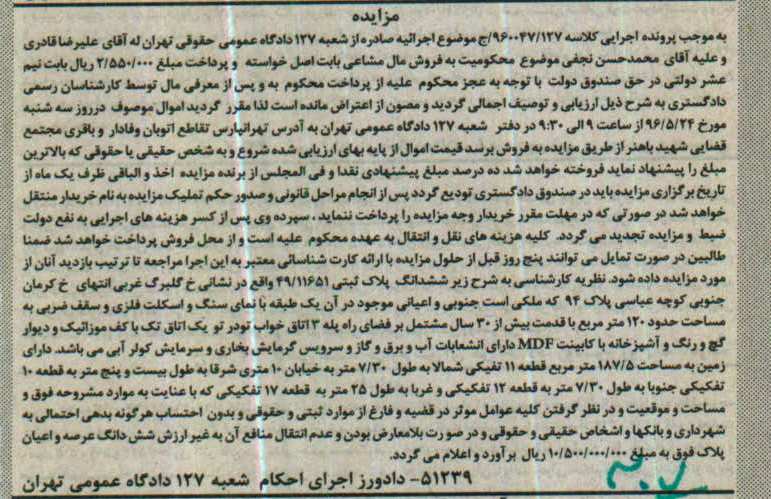 مزایده
به موجب پرونده اجرایی کلاسه ۹۶۰۰۴۷/۱۲۷/ج موضوع اجرائیه صادره از شعبه ۱۲۷ دادگاه عمومی حقوقی تهران له آقای علیرضا قادری
و علیه آقای محمدحسن نجفی موضوع محکومیت به فروش مال مشاعی بابت اصل خواسته و پرداخت مبلغ ۲/۵۵۰/۰۰۰ ریال بابت نیم
عشر دولتی در حق صندوق دولت با توجه به عجز محکوم علیه از پرداخت محکوم به و پس از معرفی مال توسط کارشناسان رسمی
دادگستری به شرح ذیل ارزیابی و توصیف اجمالی گردید و مصون از اعتراض مانده است لذا مقرر گردید اموال موصوف درروز سه شنبه
مورخ ۹۶/۵/۲۴ از ساعت ۹ الی ۹:۳۰ در دفتر شعبه ۱۲۷ دادگاه عمومی تهران به آدرس تهرانپارس تقاطع اتوبان وفادار و باقری مجتمع
قضایی شهید باهنر از طریق مزایده به فروش برسد قیمت اموال از پایه بهای ارزیابی شده شروع و به شخص حقیقی یا حقوقی که بالاترین
مبلغ را پیشنهاد نماید فروخته خواهد شد ده درصد مبلغ پیشنهادی نقدا و فی المجلس از برنده مزایده اخذ و الباقی ظرف یک ماه از
تاریخ برگزاری مزایده باید در صندوق دادگستری تودیع گردد پس از انجام مراحل قانونی و صدور حکم تملیک مزایده به نام خریدار منتقل
خواهد شد در صورتی که در مهلت مقرر خریدار وجه مزایده را پرداخت ننماید ، سپرده وی پس از کسر هزینه های اجرایی به نفع دولت
ضبط و مزایده تجدید می گردد. کلیه هزینه های نقل و انتقال به عهده محکوم علیه است و از محل فروش پرداخت خواهد شد ضمنا
طالبین در صورت تمایل می توانند پنج روز قبل از حلول مزایده با ارائه کارت شناسائی معتبر به این اجرا مراجعه تا ترتیب بازدید آنان از
مورد مزایده داده شود. نظریه کارشناسی به شرح زیر ششدانگ پلاک ثبتی ۴۹/۱۱۶۵۱ واقع در نشانی خ گلبرگ غربی انتهای خ کرمان
جنوبی کوچه عباسی پلاک ۹۴ که ملکی است جنوبی و اعیانی موجود در آن یک طبقه با نمای سنگ و اسکلت فلزی و سقف ضربی به
مساحت حدود ۱۲۰ متر مربع با قدمت بیش از ۳۰ سال مشتمل بر فضای راه پله ۳ اتاق خواب تودر تو یک اتاق تک با کف موزائیک و دیوار
گچ و رنگ و آشپزخانه با کابینت MDF دارای انشعابات آب و برق و گاز و سرویس گرمایش بخاری و سرمایش کولر آبی می باشد. دارای
زمین به مساحت ۱۸۷/۵ متر مربع قطعه ۱۱ تفیکی شمالا به طول ۷/۳۰ متر به خیابان ۱۰ متری شرقا به طول بیست و پنج متر به قطعه ۱۰
تفکیکی جنوبا به طول ۷/۳۰ متر به قطعه ۱۲ تفکیکی و غربا به طول ۲۵ متر به قطعه ۱۷ تفکیکی که با عنایت به موارد مشروحه فوق و
مساحت و موقعیت و در نظر گرفتن کلیه عوامل موثر در قضیه و فارغ از موارد ثبتی و حقوقی و بدون احتساب هرگونه بدهی احتمالی به
شهرداری و بانکها و اشخاص حقیقی و حقوقی و در صورت بلامعارض بودن و عدم انتقال منافع آن به غیر ارزش شش دانگ عرصه و اعیان
پلاک فوق به مبلغ ۱۰/۵۰۰/۰۰۰/۰۰۰ ریال برآورد و اعلام می گردد.
۵۱۲۳۹- دادورز اجرای احکام شعبه ۱۲۷ دادگاه عمومی تهران